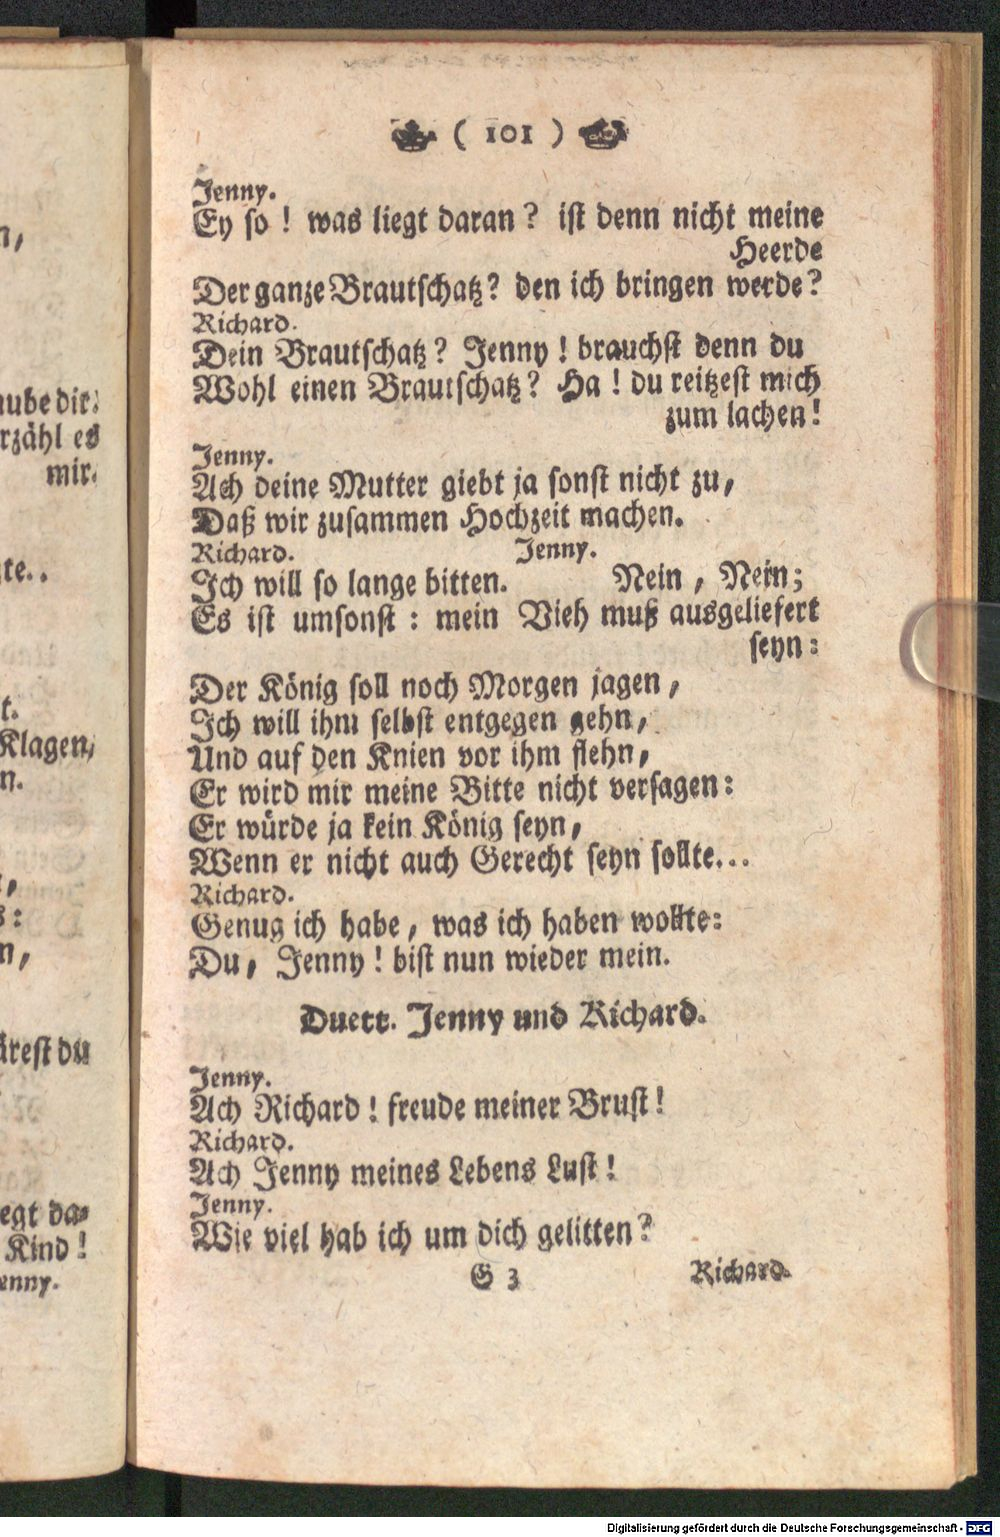 n,
aube dir:
rzähl es
mir.
te..
t.
Klagen,
n.
,
s:
n,
ärest du
egt da⸗
Kind!
enny.
( 101 )
Jenny.
Ey so! was liegt daran? ist denn nicht meine
Heerde
Der ganze Brautschatz? den ich bringen werde?
Richard.
Dein Brautschatz? Jenny! brauchst denn du
Wohl einen Brautschatz? Ha! du reitzest mich
zum lachen!
Jenny.
Ach deine Mutter giebt ja sonst nicht zu,
Daß wir zusammen Hochzeit machen.
Richard. Jenny.
Ich will so lange bitten. Nein, Nein;
Es ist umsonst: mein Vieh muß ausgeliefert
seyn:
Der König soll noch Morgen jagen,
Ich will ihm selbst entgegen gehn,
Und auf den Knien vor ihm flehn,
Er wird mir meine Bitte nicht versagen:
Er würde ja kein König seyn,
Wenn er nicht auch Gerecht seyn sollte...
Richard.
Genug ich habe, was ich haben wollte:
Du, Jenny! bist nun wieder mein.
Duett. Jenny und Richard.
Jenny.
Ach Richard! freude meiner Brust!
Richard.
Ach Jenny meines Lebens Lust!
Jenny.
Wie viel hab ich um dich gelitten?
G 3 Richard.
Digitalisierung gefördert durch die Deutsche Forschungsgemeinschaft - DFG